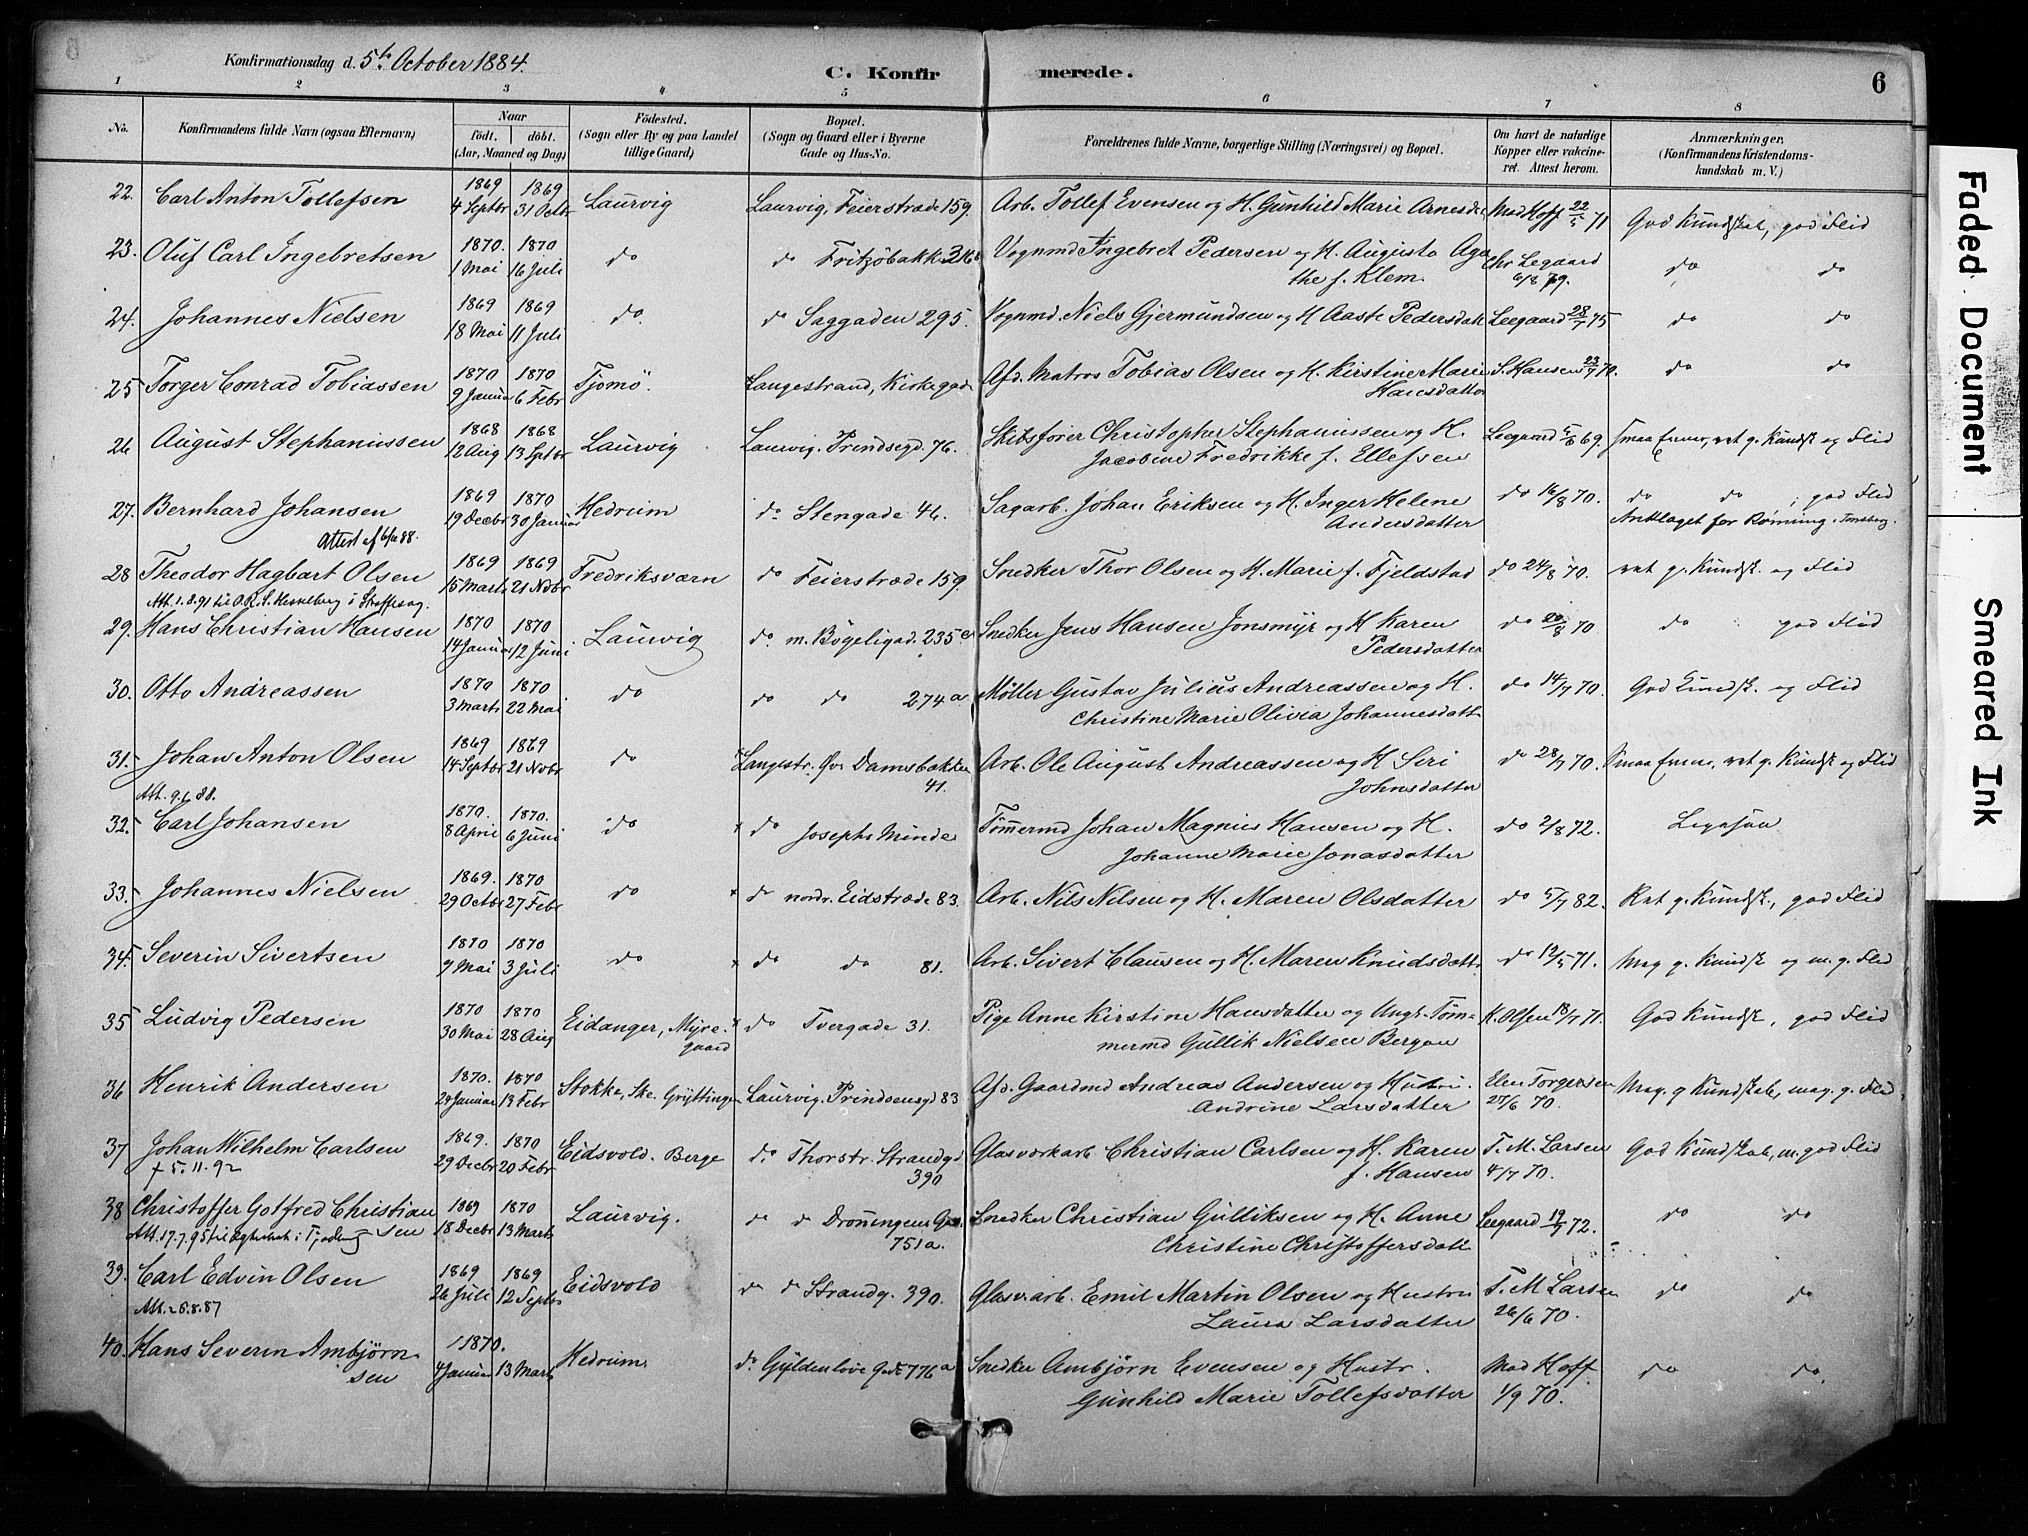 Konfirmationsdag d. 5te October 1884.
C. Konfirmerede.
6
1 2 3 4 5 6 7 8
No.
Konfirmandens fulde Navn (ogsaa Efternavn)
Naar
födt. döbt.
(Aar, Maaned og Dag)
Födested.
(Sogn eller By og paa Landet
tillige Gaard)
Bopæl.
(Sogn og Gaard eller i Byerne
Gade og Hus-No.
Forældrenes fulde Navne, borgerlige Stilling (Næringsvei) og Bopæl.
Om havt de naturlige
Kopper eller vakcine-
ret. Attest herom.
Anmærkninger.
(Konfirmandens Kristendoms-
kundskab m. V.)
22. Carl Anton Tollefsen 1869 4 Septbr 1869 31 Octbr Laurvig Laurvig, Feierstræde 159. Arb. Tollef Evensen og H. Gunhild Marie Arnesd. Mad Hoff 22/5 71 God Kundskab, god Flid
23. Oluf Carl Ingebretsen 1870. 1 Mai 1870 16 Juli do do Fritzöbakke 216 Vognmd Ingebret Pedersen og H. Augusta Aga
the f. Klem. Chr Legaard 6/8 79. do do
24. Johannes Nielsen 1869 18 Mai 1869 11 Juli do do Saggaden 295. Vognmd. Niels Gjermundsen og H Aaste Pedersdatt Leegaard 28/7 75 do do
25 Torger Conrad Tobiassen 1870 9 Januar 1870 6 Febr Tjømö. Langestrand, Kirkegade Afd. Matros Tobias Olsen og H. Kirstine Marie
Hansdatter S. Hansen 23/7 70. do do
26 August Stephanussen 1868 12 Aug 1868 13 Sptbr Laurvig Laurvig. Prindsegd. 76. Skibsfører Christopher Stephanussen og H.
Jacobine Fredrikke f. Ellefsen Leegaard 5/8 69. Smaa Evner, ret g. Kundsk og Flid
27. Bernhard Johansen 1869 19 Decbr 1870 30 Januar Hedrum do Stengade 46. Sagarb. Johan Eriksen og H. Inger Helene
Andersdatter do 16/8 70. do do, god Flid
Anklaget for Rømning. Tønsberg.
28 Theodor Hagbart Olsen 1869 15 Marts 1869 21 Nvbr Fredriksværn do Feierstræde 159. Snedker Thor Olsen og H. Marie f. Fjeldstad do 24/8 70. ret g. Kundsk. og Flid
29. Hans Christian Hansen 1870 14 Januar 1870 12 Juni Laurvig do m. Bögeligad. 235 c Snedker Jens Hansen Jonsmyr og H Karen
Pedersdatter do 20/8 70 do god Flid
30. Otto Andreassen 1870 3 Marts 1870 22 Mai do do do 274 a Møller Gustav Julius Andreassen og H.
Christine Marie Olivia Johannesdatt do 14/7 70. God Kundsk. og Flid
31. Johan Anton Olsen 1869 14 Septbr 1869 21 Novbr do Langestr. Øvr Damsbakken
41. Arb. Ole August Andreassen og H Siri
Johnsdatter do 28/7 70. Smaa Evner, ret g. Kundsk og Flid
32. Carl Johansen 1870. 8 April 1870. 6 Juni do do Josephs Minde Tømmermd Johan Magnus Hansen og H.
Johanne Marie Jonasdatter do 2/8 72. Ligesaa
33. Johannes Nielsen 1869. 29 Octbr 1870 27 Febr do do nordr. Eidstræde 83. Arb. Nils Nilsen og H. Maren Olsdatter do 5/7 82. Ret g. Kundsk., god Flid
34. Severin Sivertsen 1870 9 Mai 1870 3 Juli do do do 81. Arb. Sivert Clausen og H. Maren Knudsdattr do 12/5 71. Meg g. Kundsk og m. g. Flid
35 Ludvig Pedersen 1870 30 Mai 1870 28 Aug Eidanger, Myre-
gaard do Tvergade 31. Pige Anne Kirstine Hansdatter og Ungk. Töm-
mermd Gullik Nielsen Bergan K. Olsen 18/7 71. God Kundsk, god Flid
36 Henrik Andersen 1870. 24 Januar 1870 13 Febr Stokke, Ske. Gryttingen Laurvig. Prindsensgd 83 Afd. Gaardmd Andreas Andersen og Hustru.
Andrine Larsdatter Elen Torgersen 27/6 70. Meg. g Kundskab, meg. g. Flid
37 Johan Wilhelm Carlsen
† 5.11.92 1869. 29 Decbr 1870 20 Febr Eidsvold. Berge do Thorstr. Strandgd
390 Glasværkarb Christian Carlsen og H. Karen
f. Hansen T. M. Larsen 4/7 70. God Kundskab, m. god Flid
38 Christoffer Gotfred Christian
sen 1869 18 Decbr 1870 13 Marts Laurvig. do do Dronningens Ga.
751a. Snedker Christian Gulliksen og H. Anne
Christine Christoffersdatt Leegaard 19/7 72. do do
39. Carl Edvin Olsen 1869 26 Juli 1869 12 Septbr Eidsvold do do Strandg. 390. Glasv.arb. Emil Martin Olsen og Hustru
Laura Larsdatter T. M Larsen 26/6 70. do do
40. Hans Severin Ambjörn
sen 1870. 4 Januar 13 Marts Hedrum do Gyldenløve Gade 776 a Snedker Ambjörn Evensen og Hustr.
Gunhild Marie Tollefsdatter Mad Hoff. 1/9 70. do do.
Faded Document
Smeared Ink